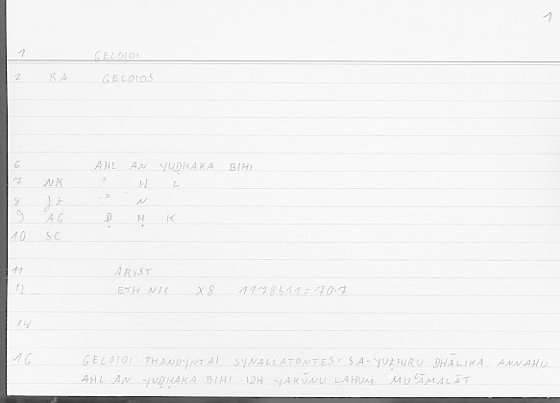 1
1 GELOIOI
2 RA GELOIOS
6 AHL AN YUḌḤAKA BIHI
7 NK ʾ H L
8 JZ ʾ N
9 AG Ḍ Ḥ K
10 SC
11 ARIST
12 ETH NIC X8 1178b11 = 70.7
14
16 GELOIOI PHANOYNTAI SYNALLATONTES: SA-YUẒHIRU DHĀLIKA ANNAHU
AHL AN YUḌḤAKA BIHI IDH YAKŪNU LAHUM MUʿĀMALĀT